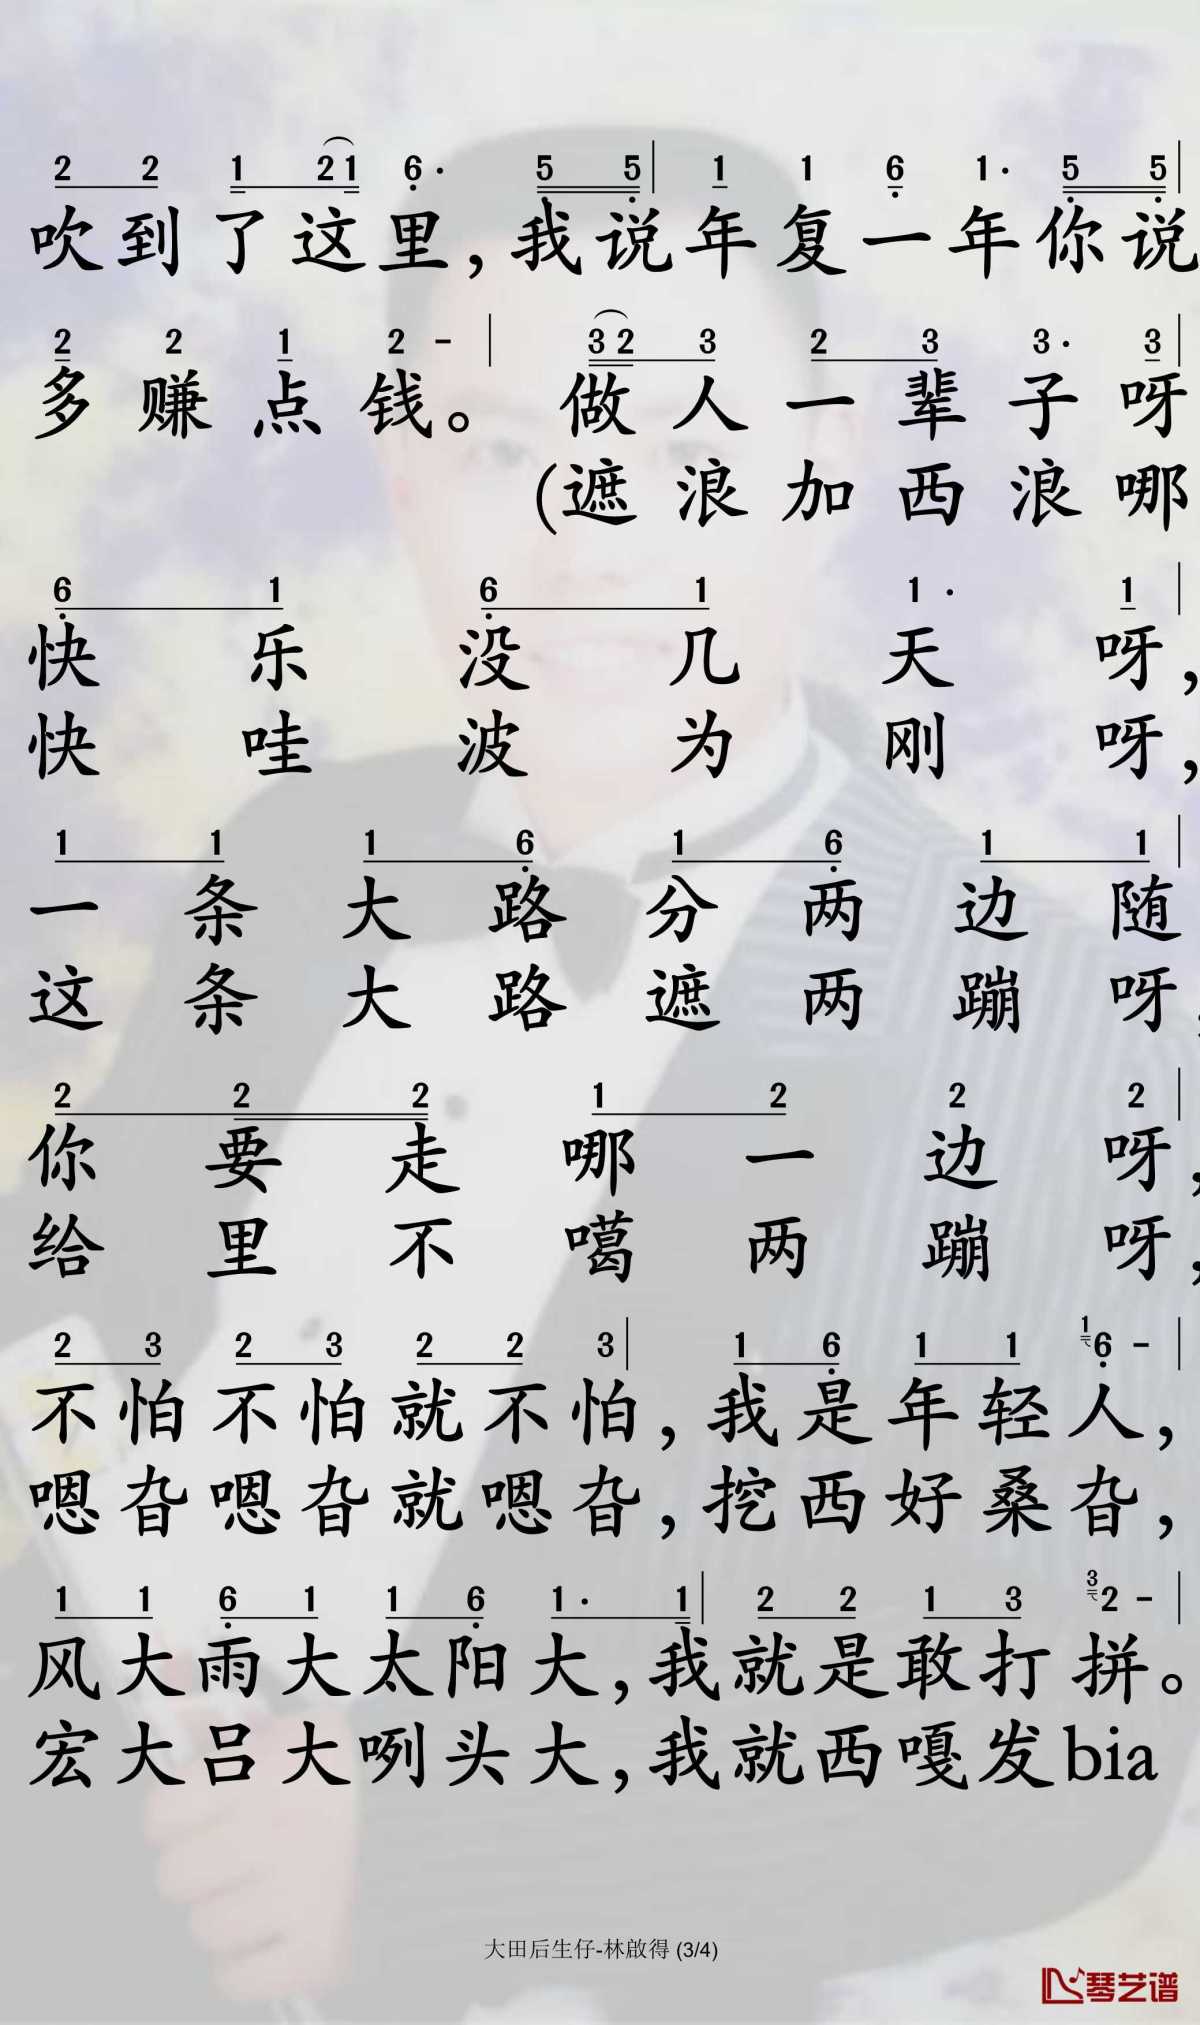 2 2 1 2 1 6· 5 5 | 1 1 6 1· 5 5 |
吹到了这里,我说年复一年你说
2 2 1 2 - | 3 2 3 2 3 3· 3 |
多赚点钱。做人一辈子呀
(遮浪加西浪哪
6 1 6 1 1· 1 |
快乐没几天呀,
快哇波为刚呀,
1 1 1 6 1 6 1 1 |
一条大路分两边随
这条大路遮两蹦呀,
2 2 2 1 2 2 2 |
你要走哪一边呀,
给里不噶两蹦呀,
2 3 2 3 2 2 3 | 1 6 1 1 1 6 - |
不怕不怕就不怕,我是年轻人,
嗯旮嗯旮就嗯旮,挖西好桑旮,
1 1 6 1 1 6 1· 1 | 2 2 1 3 3 2 - |
风大雨大太阳大,我就是敢打拼。
宏大吕大咧头大,我就西嘎发bia
大田后生仔-林啟得 (3/4)
琴艺谱